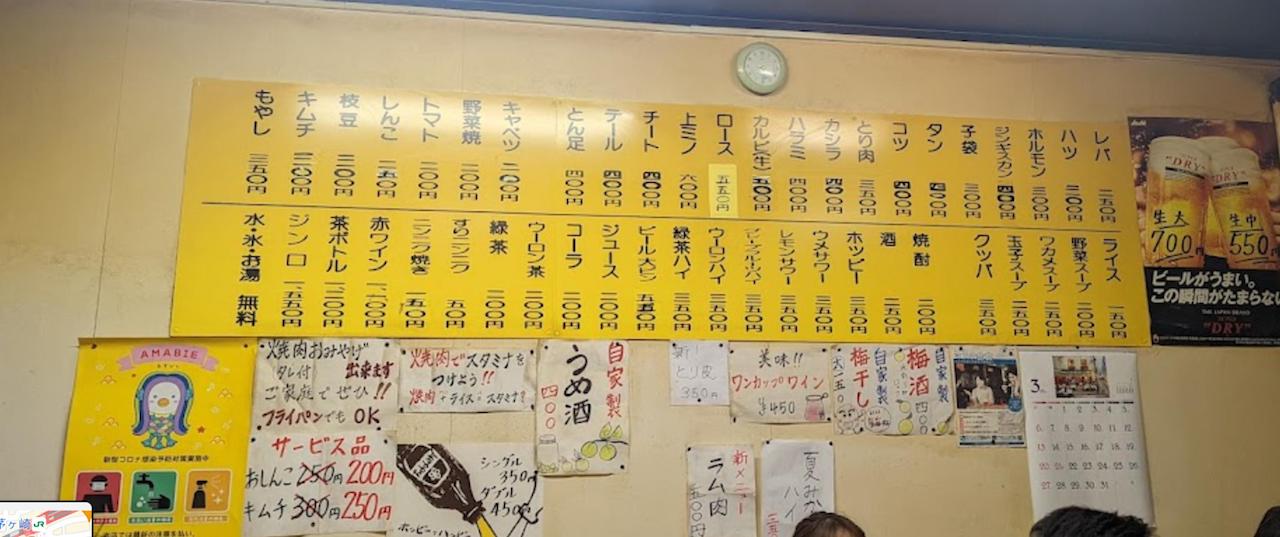 レバ 二五〇円
ハツ 三〇〇円
ホルモン 三〇〇円
ジンギスカン 四〇〇円
子袋 三〇〇円
タン 四〇〇円
コツ 四〇〇円
とり肉 三五〇円
カシラ 四〇〇円
ハラミ 四〇〇円
カルビ(生) 五〇〇円
ロース 五五〇円
上ミノ 六〇〇円
チート 四〇〇円
テール 四〇〇円
とん足 四〇〇円
キャベツ 二〇〇円
野菜焼 二〇〇円
トマト 二〇〇円
しんこ 二五〇円
枝豆 三〇〇円
キムチ 三〇〇円
もやし 三五〇円
ライス 一五〇円
野菜スープ 二〇〇円
ワカメスープ 二五〇円
玉子スープ 二五〇円
クッパ 三五〇円
焼酎 二〇〇円
酒 二五〇円
ホッピー 三五〇円
ウメサワー 三五〇円
レモンサワー 三五〇円
三五〇円
ウーロンハイ 三五〇円
緑茶ハイ 三五〇円
ビール大ビン 五五〇円
ジュース 二〇〇円
コーラ 二〇〇円
ウーロン茶 二〇〇円
緑茶 二〇〇円
すりニンニク 五〇円
ニンニク焼き 一五〇円
赤ワイン 一、二〇〇円
茶ボトル 一、二〇〇円
ジンロ 一、五〇〇円
水・氷・お湯 無料
Asahi
"DRY"
"DRY"
生大
700円
生中
550円
ビールがうまい。
この瞬間がたまらない
THE JAPAN BRAND
"DRY"
AMABIE
新型コロナ感染予防対策実施中
焼肉おみやげ
タレ付 出来ます
ご家庭でぜひ!!
フライパンでもOK
サービス品
おしんこ 250円 200円
キムチ 300円 250円
焼肉でスタミナを
つけよう!!
焼肉+ライス=スタミナ?
シングル
350円
ダブル
450円
自家製
うめ酒
四〇〇
新!
とり皮
350円
美味!!
ワンカップワイン
¥450
梅酒
四〇〇
自家製
梅干し
新メニュー
ラム肉
五〇〇円
夏みか
ハイ
3
1 2 3 4 5
6 7 8 9 10 11 12
13 14 15 16 17 18 19
20 21 22 23 24 25 26
27 28 29 30 31
茅ヶ崎 JR